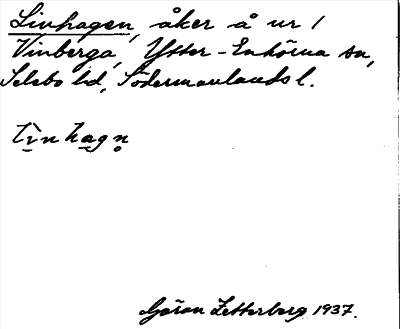 Linhagen, åker å ur 1
Vinberga, Ytter-Enhörna sn,
Selebo hd, Södermanlands l.
lìnhagn̥
Göran Zetterberg 1937.